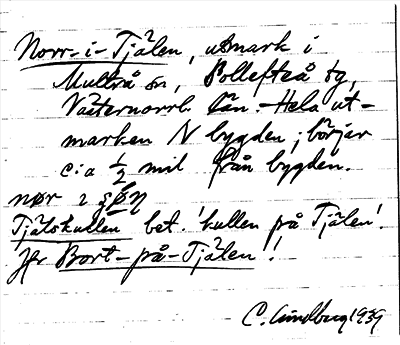 Norr-i-Tjälen, utmark i
Multrå sn, Sollefteå tg,
Västernorrl. län. - Hela ut-
marken N bygden; börjar
c:a ½ mil från bygden.
nør
Tjälskullen bet. 'kullen på Tjälen'.
Jfr Bort-på-Tjälen!
C. Lindberg 1939